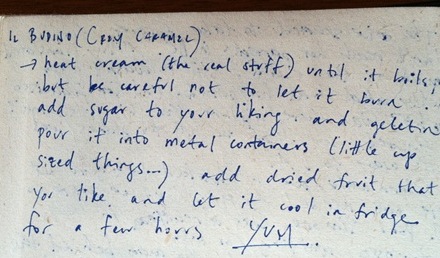 IL BUDINO (CROM CARAMEL)
→ heat cream (the real stuff) until it boils,
but be careful not to let it burn.
add sugar to your liking and geletin
pour it into metal containers (little cup
sized things...) add dried fruit that
you like and let it cool in fridge
for a few hours YUM.